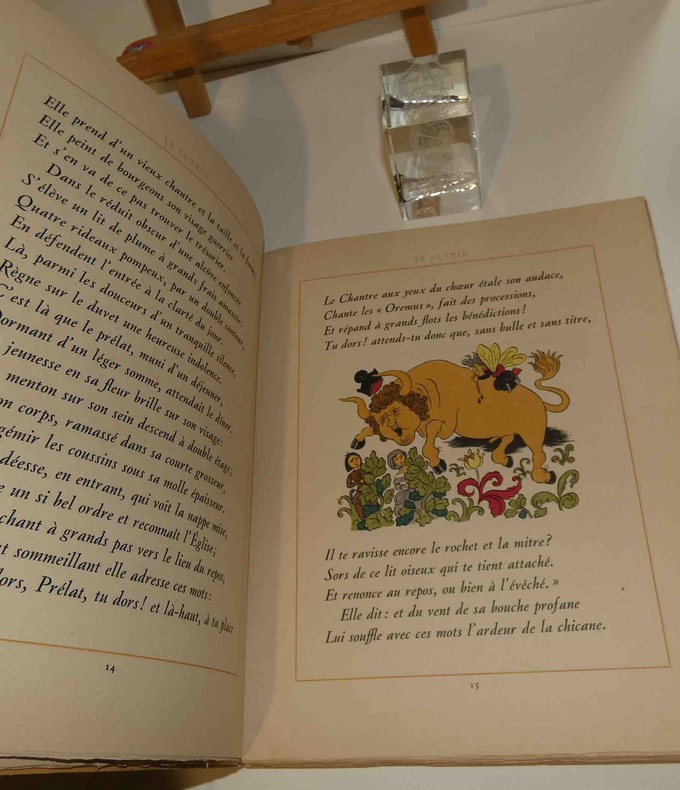 LE LUTRIN
Elle prend d'un vieux chantre et la taille et la
Elle peint de bourgeons son visage guerrier
Et s'en va de ce pas trouver le trésorier.
Dans le réduit obscur d'une alcôve enfoncée
S'élève un lit de plume à grands frais amassée:
Quatre rideaux pompeux, par un double contour,
En défendent l'entrée à la clarté du jour.
Là, parmi les douceurs d'un tranquille silence,
Règne sur le duvet une heureuse indolence.
C'est là que le prélat, muni d'un déjeuner,
Dormant d'un léger somme, attendait le dîner.
jeunesse en sa fleur brille sur son visage:
menton sur son sein descend à double étage;
on corps, ramassé dans sa courte grosseur,
gémir les coussins sous sa molle épaisseur.
déesse, en entrant, qui voit la nappe mise,
e un si bel ordre et reconnaît l'Église;
chant à grands pas vers le lieu du repos,
t sommeillant elle adresse ces mots:
dors, Prélat, tu dors! et là-haut, à ta place
14
LE LUTRIN
Le Chantre aux yeux du chœur étale son audace,
Chante les « Oremus », fait des processions,
Et répand à grands flots les bénédictions!
Tu dors! attends-tu donc que, sans bulle et sans titre,
Il te ravisse encore le rochet et la mitre?
Sors de ce lit oiseux qui te tient attaché.
Et renonce au repos, ou bien à l'évêché. »
Elle dit: et du vent de sa bouche profane
Lui souffle avec ces mots l'ardeur de la chicane.
15